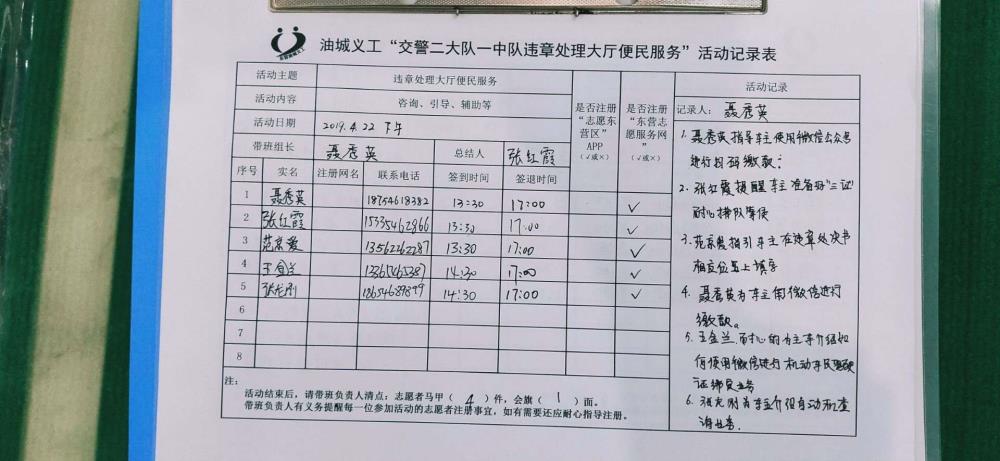 油城义工“交警二大队一中队违章处理大厅便民服务”活动记录表
活动主题 违章处理大厅便民服务
活动内容 咨询、引导、辅助等
活动日期 2019.4.22 下午
带班组长 聂秀英 总结人 张红霞
是否注册“志愿东营区”APP（√或×）
是否注册“东营志愿服务网”（√或×）
序号 实名 注册网名 联系电话 签到时间 签退时间
1 聂秀英 18754618382 13:30 17:00 √
2 张红霞 15335462866 13:30 17:00 √
3 范京爱 13562262287 13:30 17:00 √
4 王金兰 13365465387 14:30 17:00 √
5 张龙刚 18654689899 14:30 17:00 √
6
7
8
注：
活动结束后，请带班负责人清点：志愿者马甲（4）件，会旗（1）面。
带班负责人有义务提醒每一位参加活动的志愿者注册事宜，如有需要还应耐心指导注册。
活动记录
记录人：聂秀英
1. 聂秀英指导车主使用微信公众号
进行扫码缴款；
2. 张红霞提醒车主准备好“三证”
耐心排队等候
3. 范京爱指引车主在违章处决书
相应位置上填字
4. 聂秀英为车主用微信进行
缴款。
5. 王金兰耐心的为车主介绍如
何使用微信进行机动车驾驶
证绑定业务
6. 张龙刚为车主介绍自动机查
询业务.